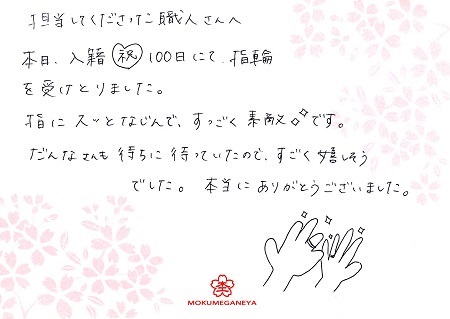 担当してくださった職人さんへ
本日、入籍 祝 100日にて、指輪
を受けとりました。
指にスッとなじんで、すっごく素敵です。
だんなさんも待ちに待っていたので、すごく嬉しそう
でした。本当にありがとうございました。
MOKUMEGANEYA